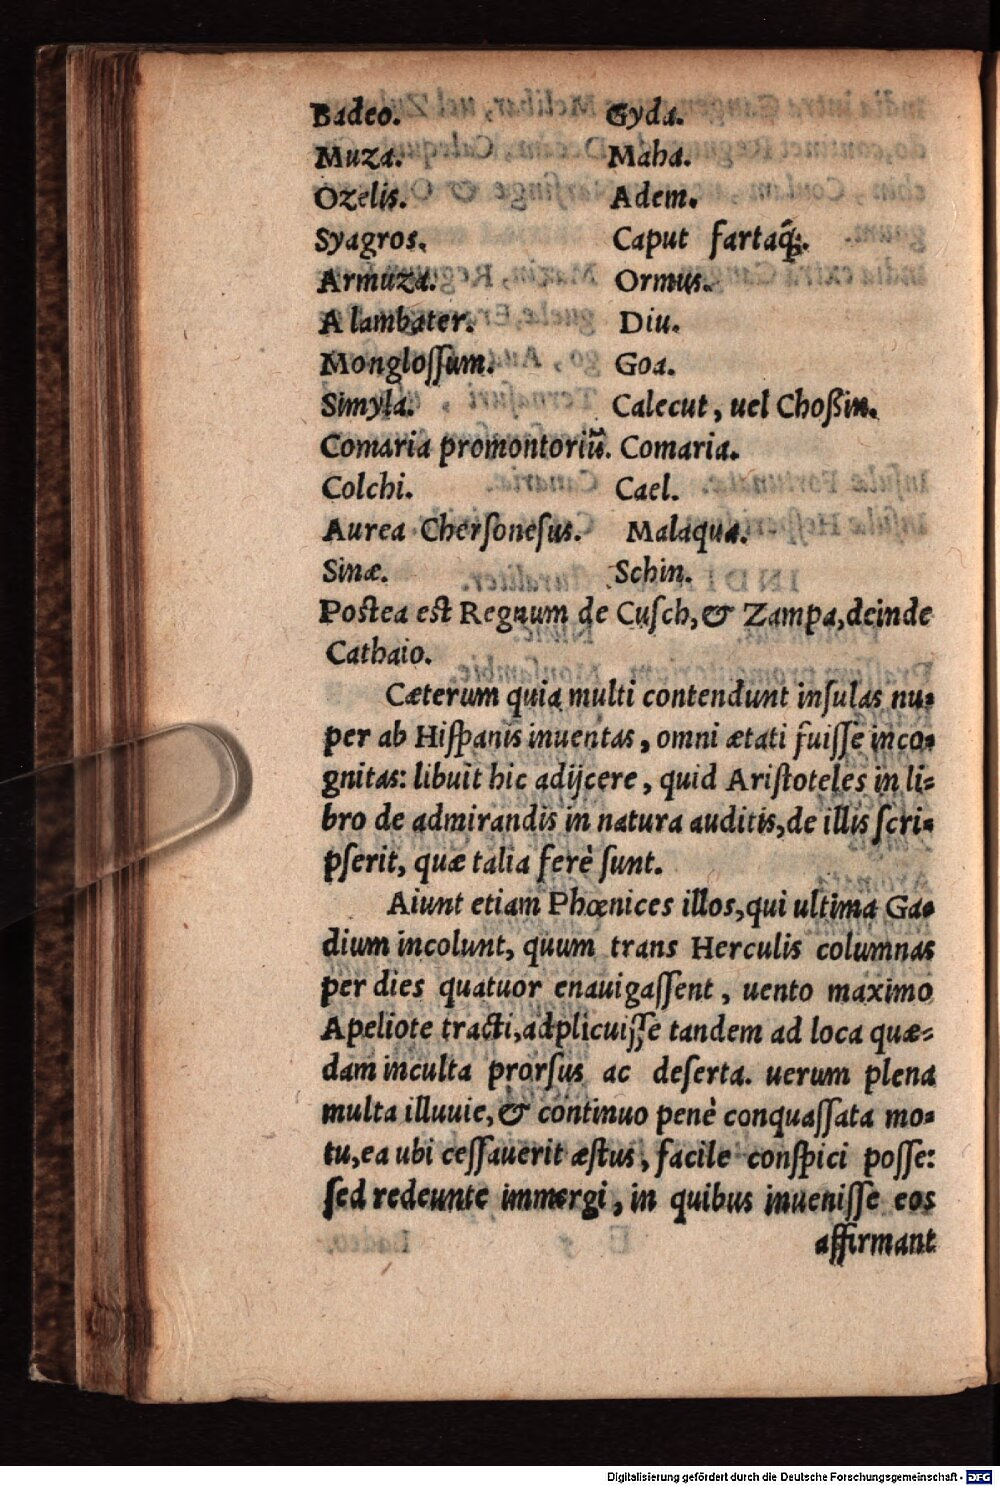 Badeo. Gyda.
Muza. Maha.
Ozelis. Adem.
Syagros. Caput fartaq̃;.
Armuza. Ormus.
Alambater. Diu.
Mongloſſum. Goa.
Simyla. Calecut, uel Choßin.
Comaria promontoriũ. Comaria.
Colchi. Cael.
Aurea Cherſoneſus. Malaqua.
Sinæ. Schin.
Poſtea eſt Regnum de Cuſch, & Zampa, deinde
Cathaio.
Cæterum quia multi contendunt inſulas nu-
per ab Hiſpanis inuentas, omni ætati fuiſſe inco-
gnitas: libuit hic adijcere, quid Ariſtoteles in li-
bro de admirandis in natura auditis, de illis ſcri-
pſerit, quæ talia ferè ſunt.
Aiunt etiam Phœnices illos, qui ultima Ga-
dium incolunt, quum trans Herculis columnas
per dies quatuor enauigaſſent, uento maximo
Apeliote tracti, adplicuiſſe tandem ad loca quæ-
dam inculta prorſus ac deſerta. uerum plena
multa illuuie, & continuo penè conquaſſata mo-
tu, ea ubi ceſſauerit æſtus, facile conſpici poſſe:
ſed redeunte immergi, in quibus inueniſſe eos
affirmant
Digitalisierung gefördert durch die Deutsche Forschungsgemeinschaft - DFG